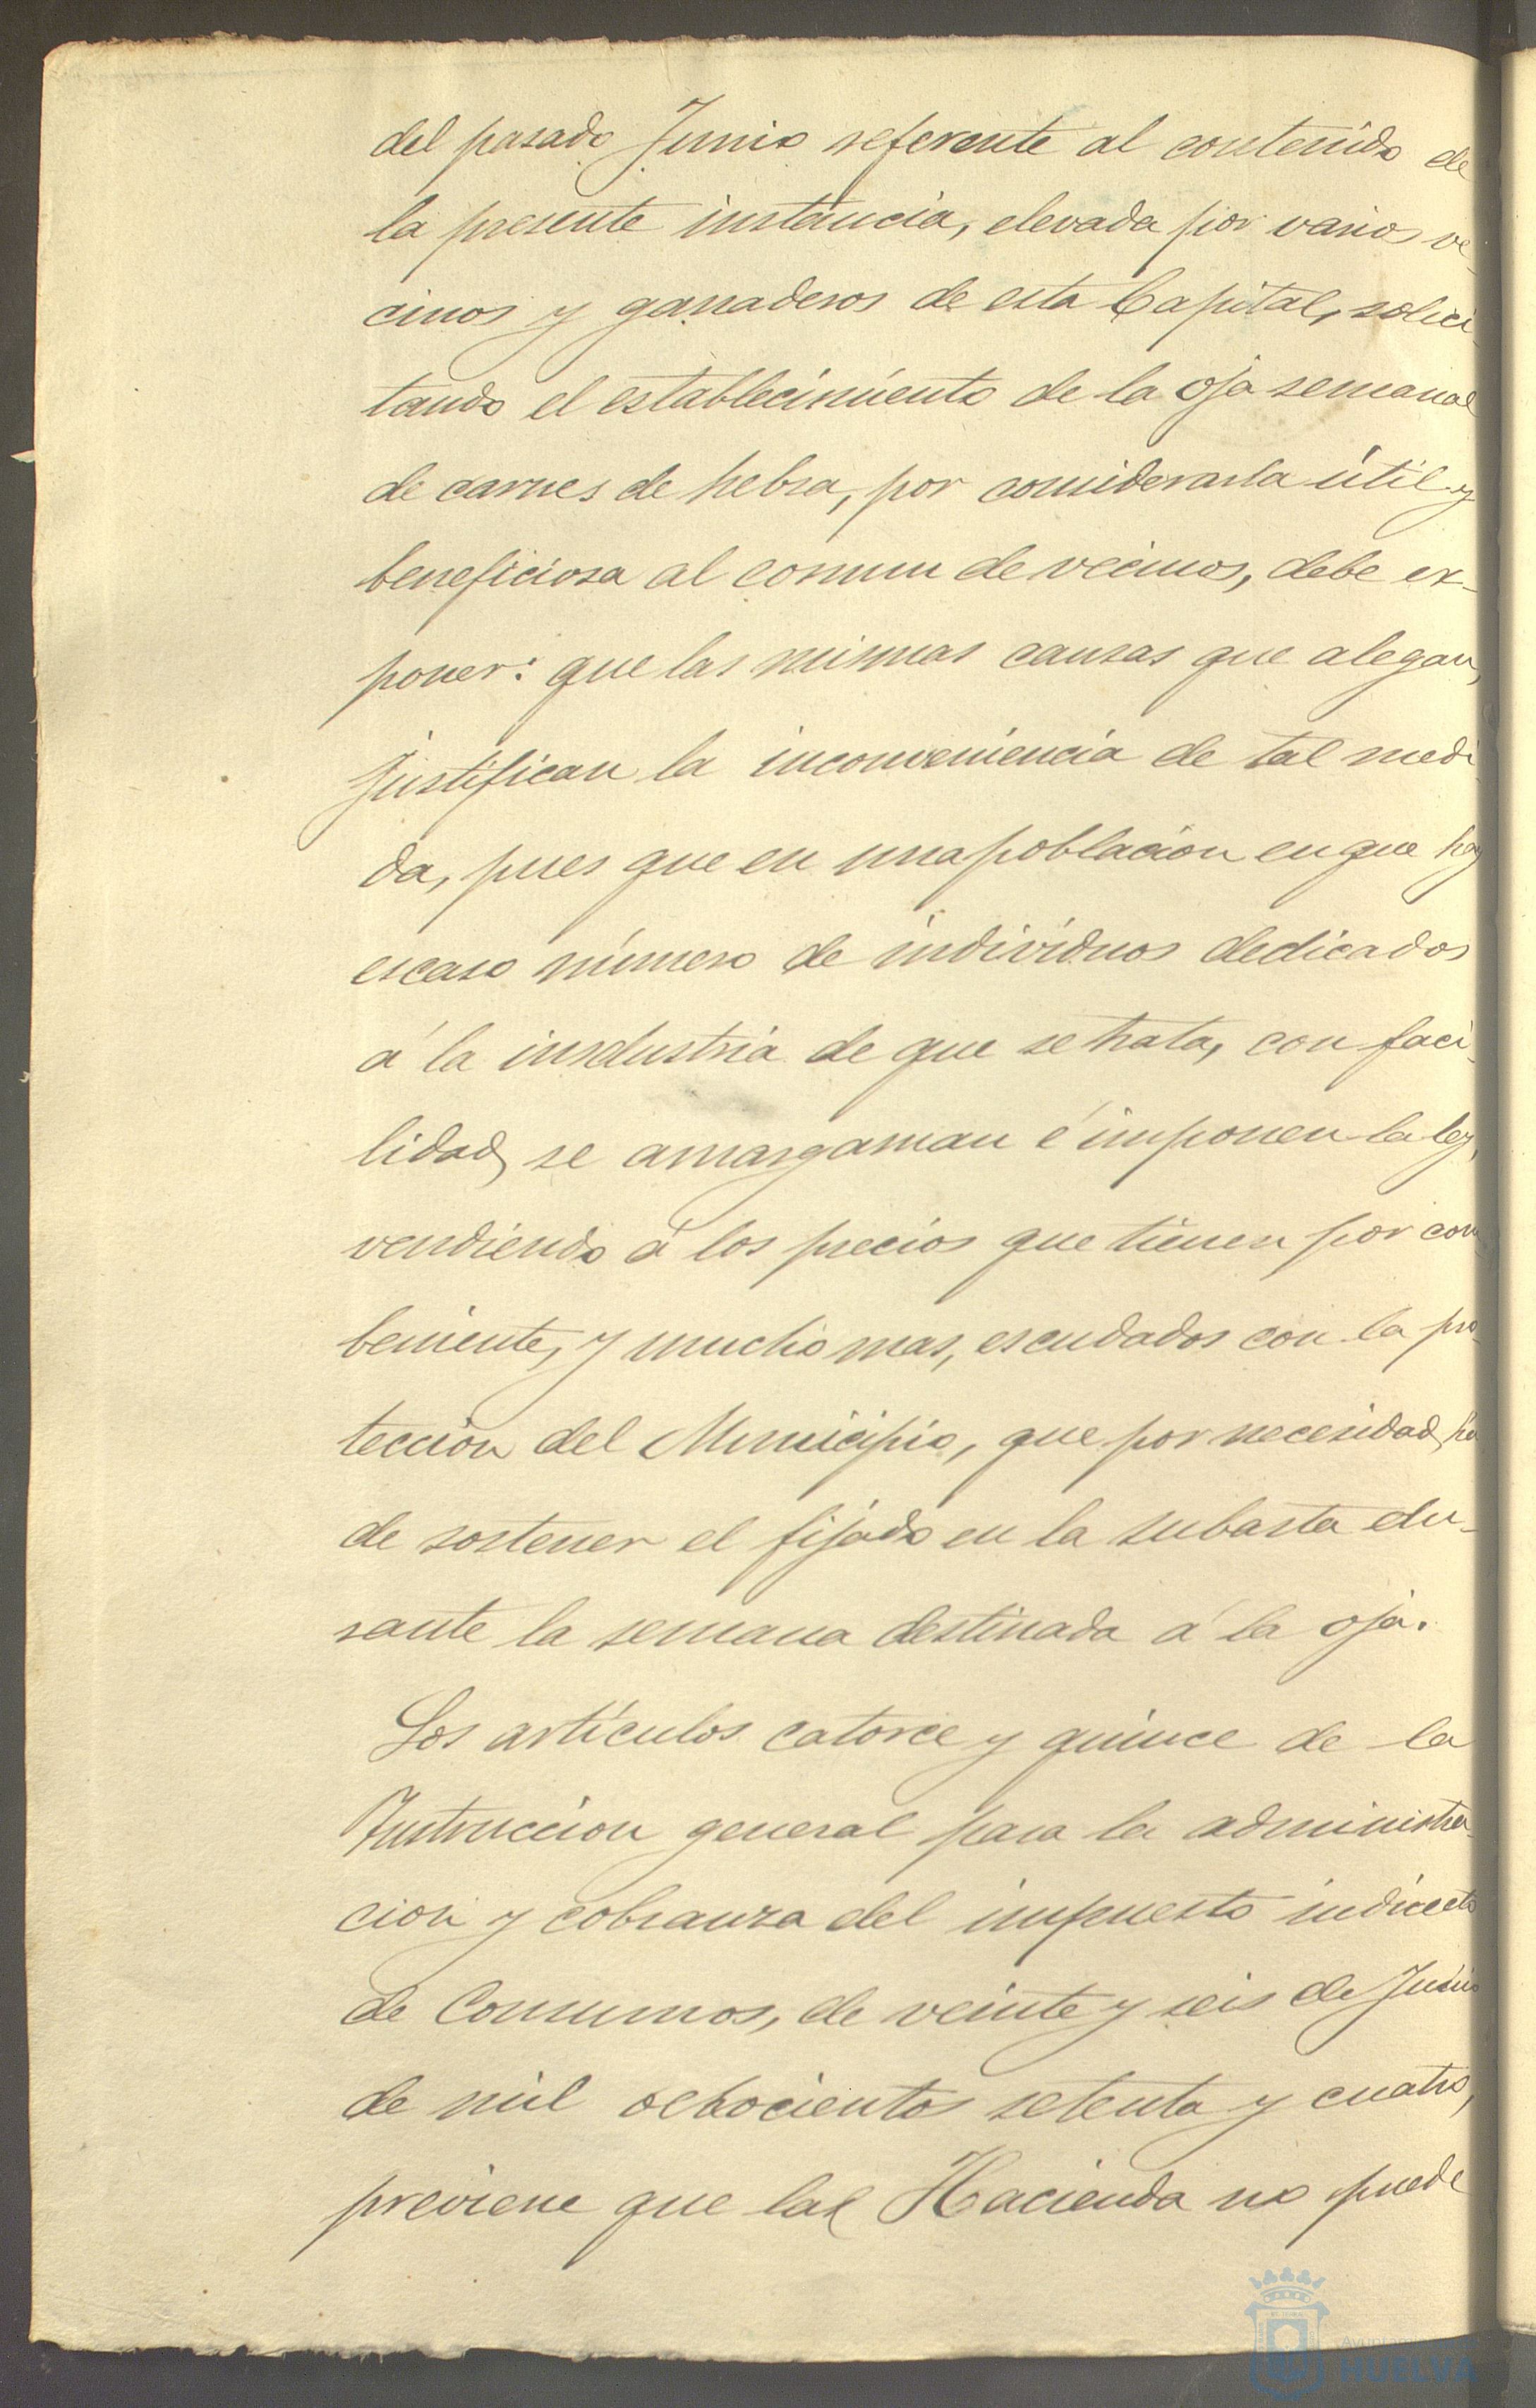 del pasado Junio referente al contenido de
la presente instancia, elevada por varios ve-
cinos y ganaderos de esta Capital, solici-
tando el establecimiento de la oja semanal
de carnes de hebra, por considerarla útil y
beneficiosa al comun de vecinos, debe ex-
poner: que las mismas causas que alegan,
justifican la inconveniencia de tal medi-
da, pues que en una poblacion en que hay
escaso número de individuos dedicados
á la insdustria de que se trata, con faci-
lidad, se amargaman é imponen la ley,
vendiendo á los precios que tienen por con
beniente, y mucho mas, escudados con la pro-
teccion del Municipio, que por necesidad, ha
de sostener el fijado en la subasta du-
rante la semana destinada á la oja.
Los artículos catorce y quince de la
Instruccion general para la administra-
cion y cobranza del impuesto indirecto
de Consumos, de veinte y seis de Junio
de mil ochocientos setenta y cuatro,
previene que la Hacienda no puede
HUELVA